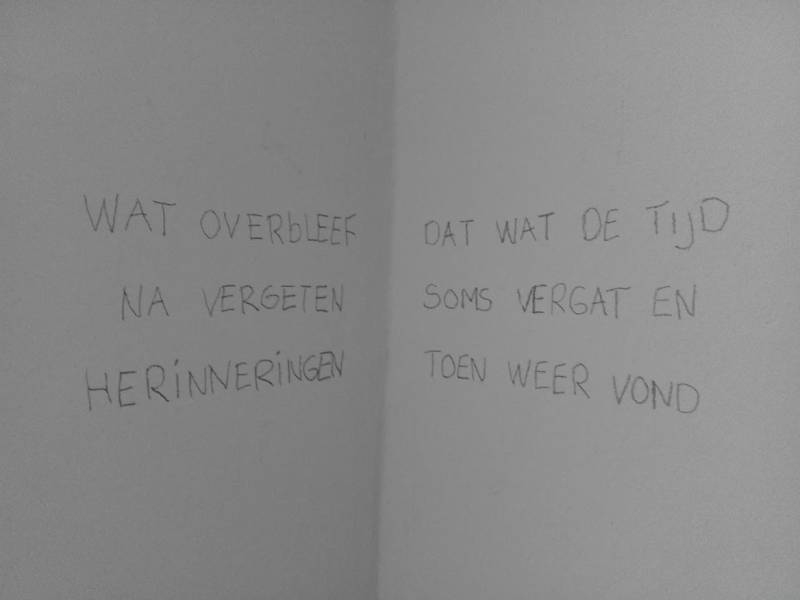 WAT OVERbLEEF
NA VERGETEN
HERiNNERiNGEN
DAT WAT DE TIJD
SOMS VERGAT EN
TOEN WEER VOND